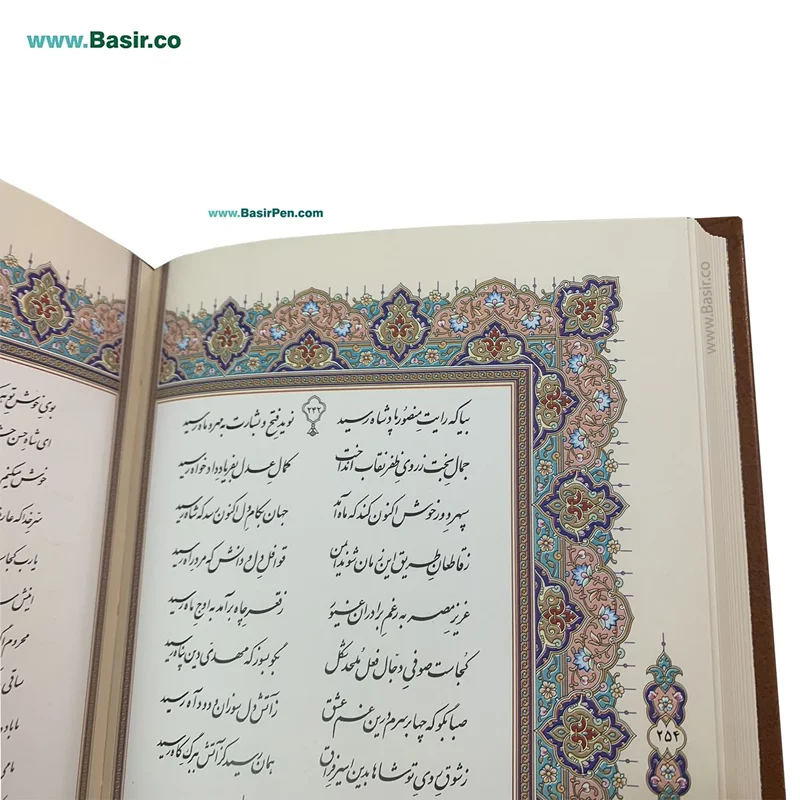 www.Basir.co
www.BasirPen.com
www.Basir.co
۲۴۲
بیا که رایت منصور پادشاه رسید نوید فتح و بشارت به مهر و ماه رسید
جمال بخت ز روی ظفر نقاب انداخت کمال عدل به فریاد دادخواه رسید
سپهر دور خوش اکنون کند که ماه آمد جهان به کام دل اکنون رسد که شاه رسید
ز قاطعان طریق این زمان شوند ایمن قوافل دل و دانش که مرد راه رسید
عزیز مصر به رغم برادران غیور ز قعر چاه برآمد به اوج ماه رسید
کجاست صوفی دجال فعل ملحد شکل بگو بسوز که مهدی دین پناه رسید
صبا بگو که چها بر سرم درین غم عشق ز آتش دل سوزان و دود آه رسید
ز شوق روی تو شاها بدین اسیر فراق همان رسید کز آتش به برگ کاه رسید
۲۵۴
بوی خوش تو
ای شاه حسن
خوش می‌کنم
سر خدا که عارف
یا رب کجاست
اینش
محروم
ساقی
ما باده
ما می